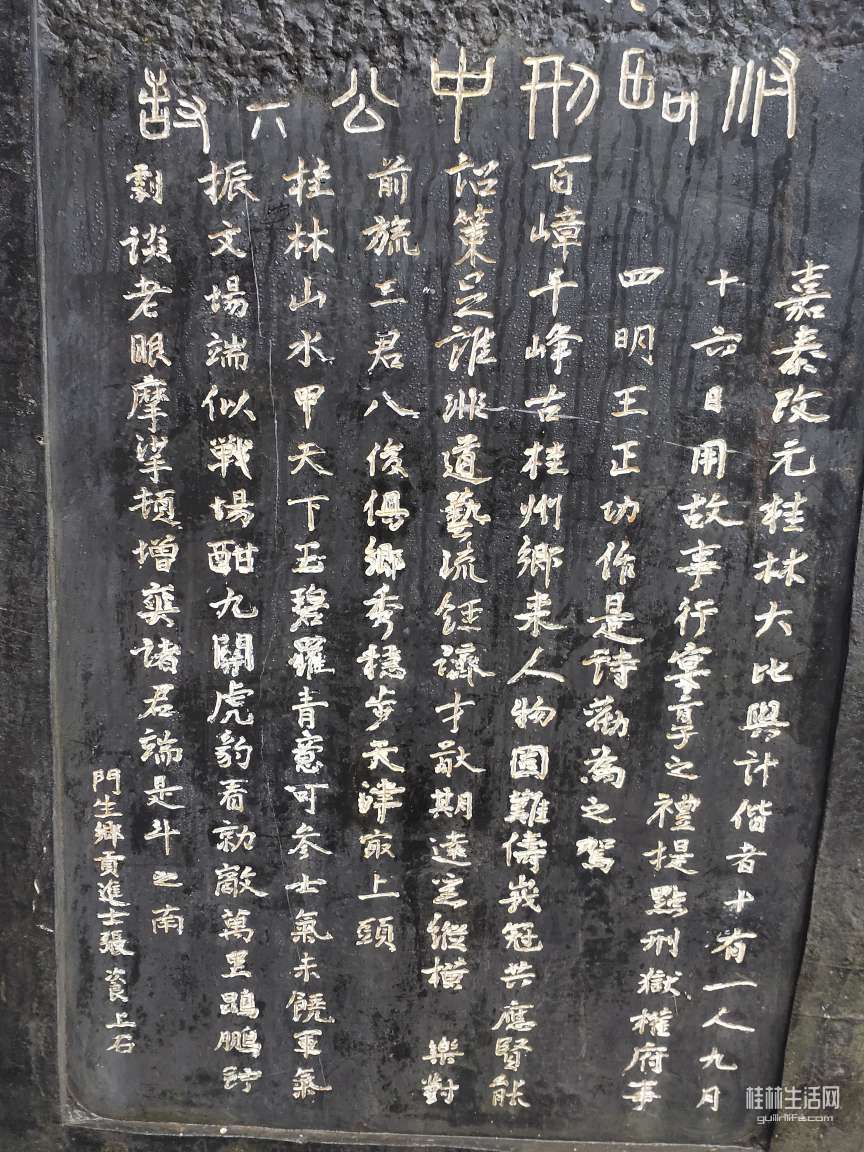 刑中公
嘉泰改元桂林大比與計偕者十有一人九月
十六日用故事行宴享之禮提點刑獄權府事
四明王正功作是詩勸為之駕
百嶂千峰古桂州鄉來人物固難儔峩冠共應賢能
詔策足誰非道藝流經濟才猷期遠業縱橫 樂對
前旒三君八俊俱鄉秀穩步天津冣上頭
桂林山水甲天下玉碧羅青意可參士氣未饒軍氣
振文場端似戰場酣九關虎豹看勍敵萬里鵾鵬佇
劇談老眼摩挲頓增爽諸君端是斗之南
門生鄉貢進士張次良上石
桂林生活网
guilinlife.com